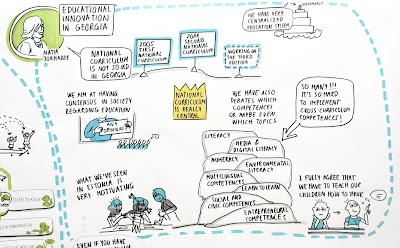 EDUCATIONAL
INNOVATION
IN GEORGIA
NATIA
JOKHADZE
NATIONAL
CURRICULUM
IS NOT SO OLD
IN GEORGIA
2005
FIRST
NATIONAL
CURRICULUM
SECOND
NATIONAL
CURRICULUM
WORKING ON
THE THIRD
EDITION
WE HAVE VERY
CENTRALIZED
EDUCATION SYSTEM
WE AIM AT HAVING
CONSENSUS IN SOCIETY
REGARDING EDUCATION
NATIONAL
CURRICULUM
IS REALLY
CENTRAL
WE HAVE ALSO
DEBATES WHICH
COMPETENCES
OR MAYBE EVEN
WHICH TOPICS
SO MANY!!!
IT'S SO HARD
TO IMPLEMENT
CROSS-CURRICULUM
COMPETENCES!
LITERACY
MEDIA &
DIGITAL LITERACY
NUMERACY
ENVIRONMENTAL
LITERACY
MULTILINGUAL
COMPETENCES
LEARN TO LEARN
SOCIAL AND
CIVIC COMPETENCES
ENTREPRENEURIAL
COMPETENCES
WHAT WE'VE SEEN
IN ESTONIA IS
VERY MOTIVATING
I FULLY AGREE THAT
WE HAVE TO TEACH OUR
CHILDREN HOW TO THINK
EVEN IF YOU HAVE